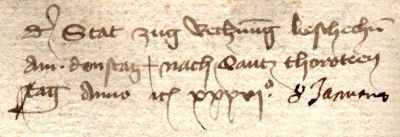 d' Stat zug Rechnu͂g beschechn̄
am donstag nach Sant thoroteen
tag Anno ꝛc xxxvi° 8 Januar